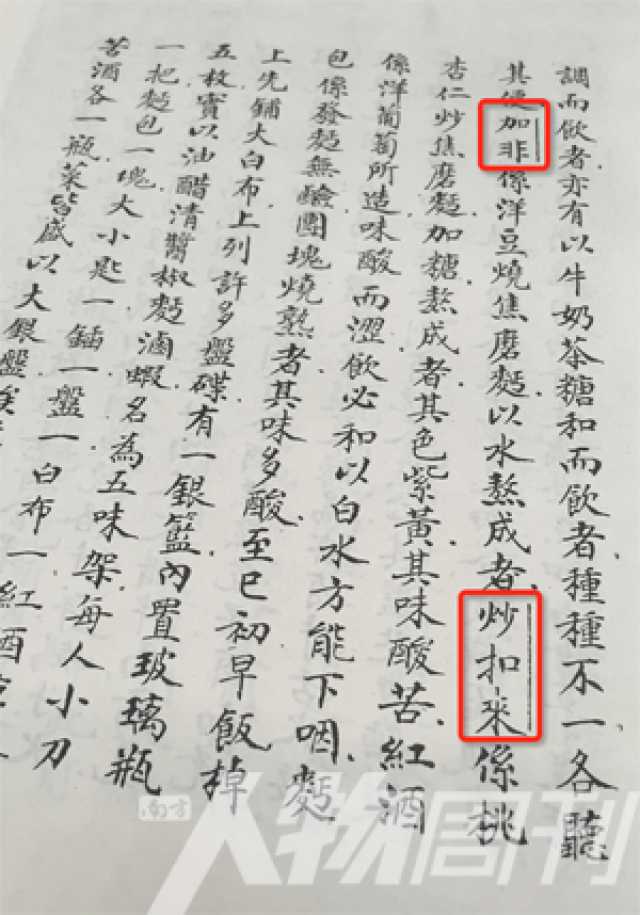 調而飲者亦有以牛奶茶糖和而飲者種種不一各聽
其便加非係洋豆燒焦磨麵以水熬成者炒扣來係桃
杏仁炒焦磨麵加糖熬成者其色紫黃其味酸苦紅酒
係洋葡萄所造味酸而澀飲必和以白水方能下咽麪
包係發麵無鹼團塊燒熟者其味多酸至巳初早飯棹
上先鋪大白布上列許多盤碟有一銀籃內置玻璃瓶
五枚實以油醋清醬椒麪滷蝦名為五味架每人小刀
一把麪包一塊大小匙一鍤一盤一白布一紅酒
苦酒各一瓶菜皆盛以大銀盤
南方人物周刊